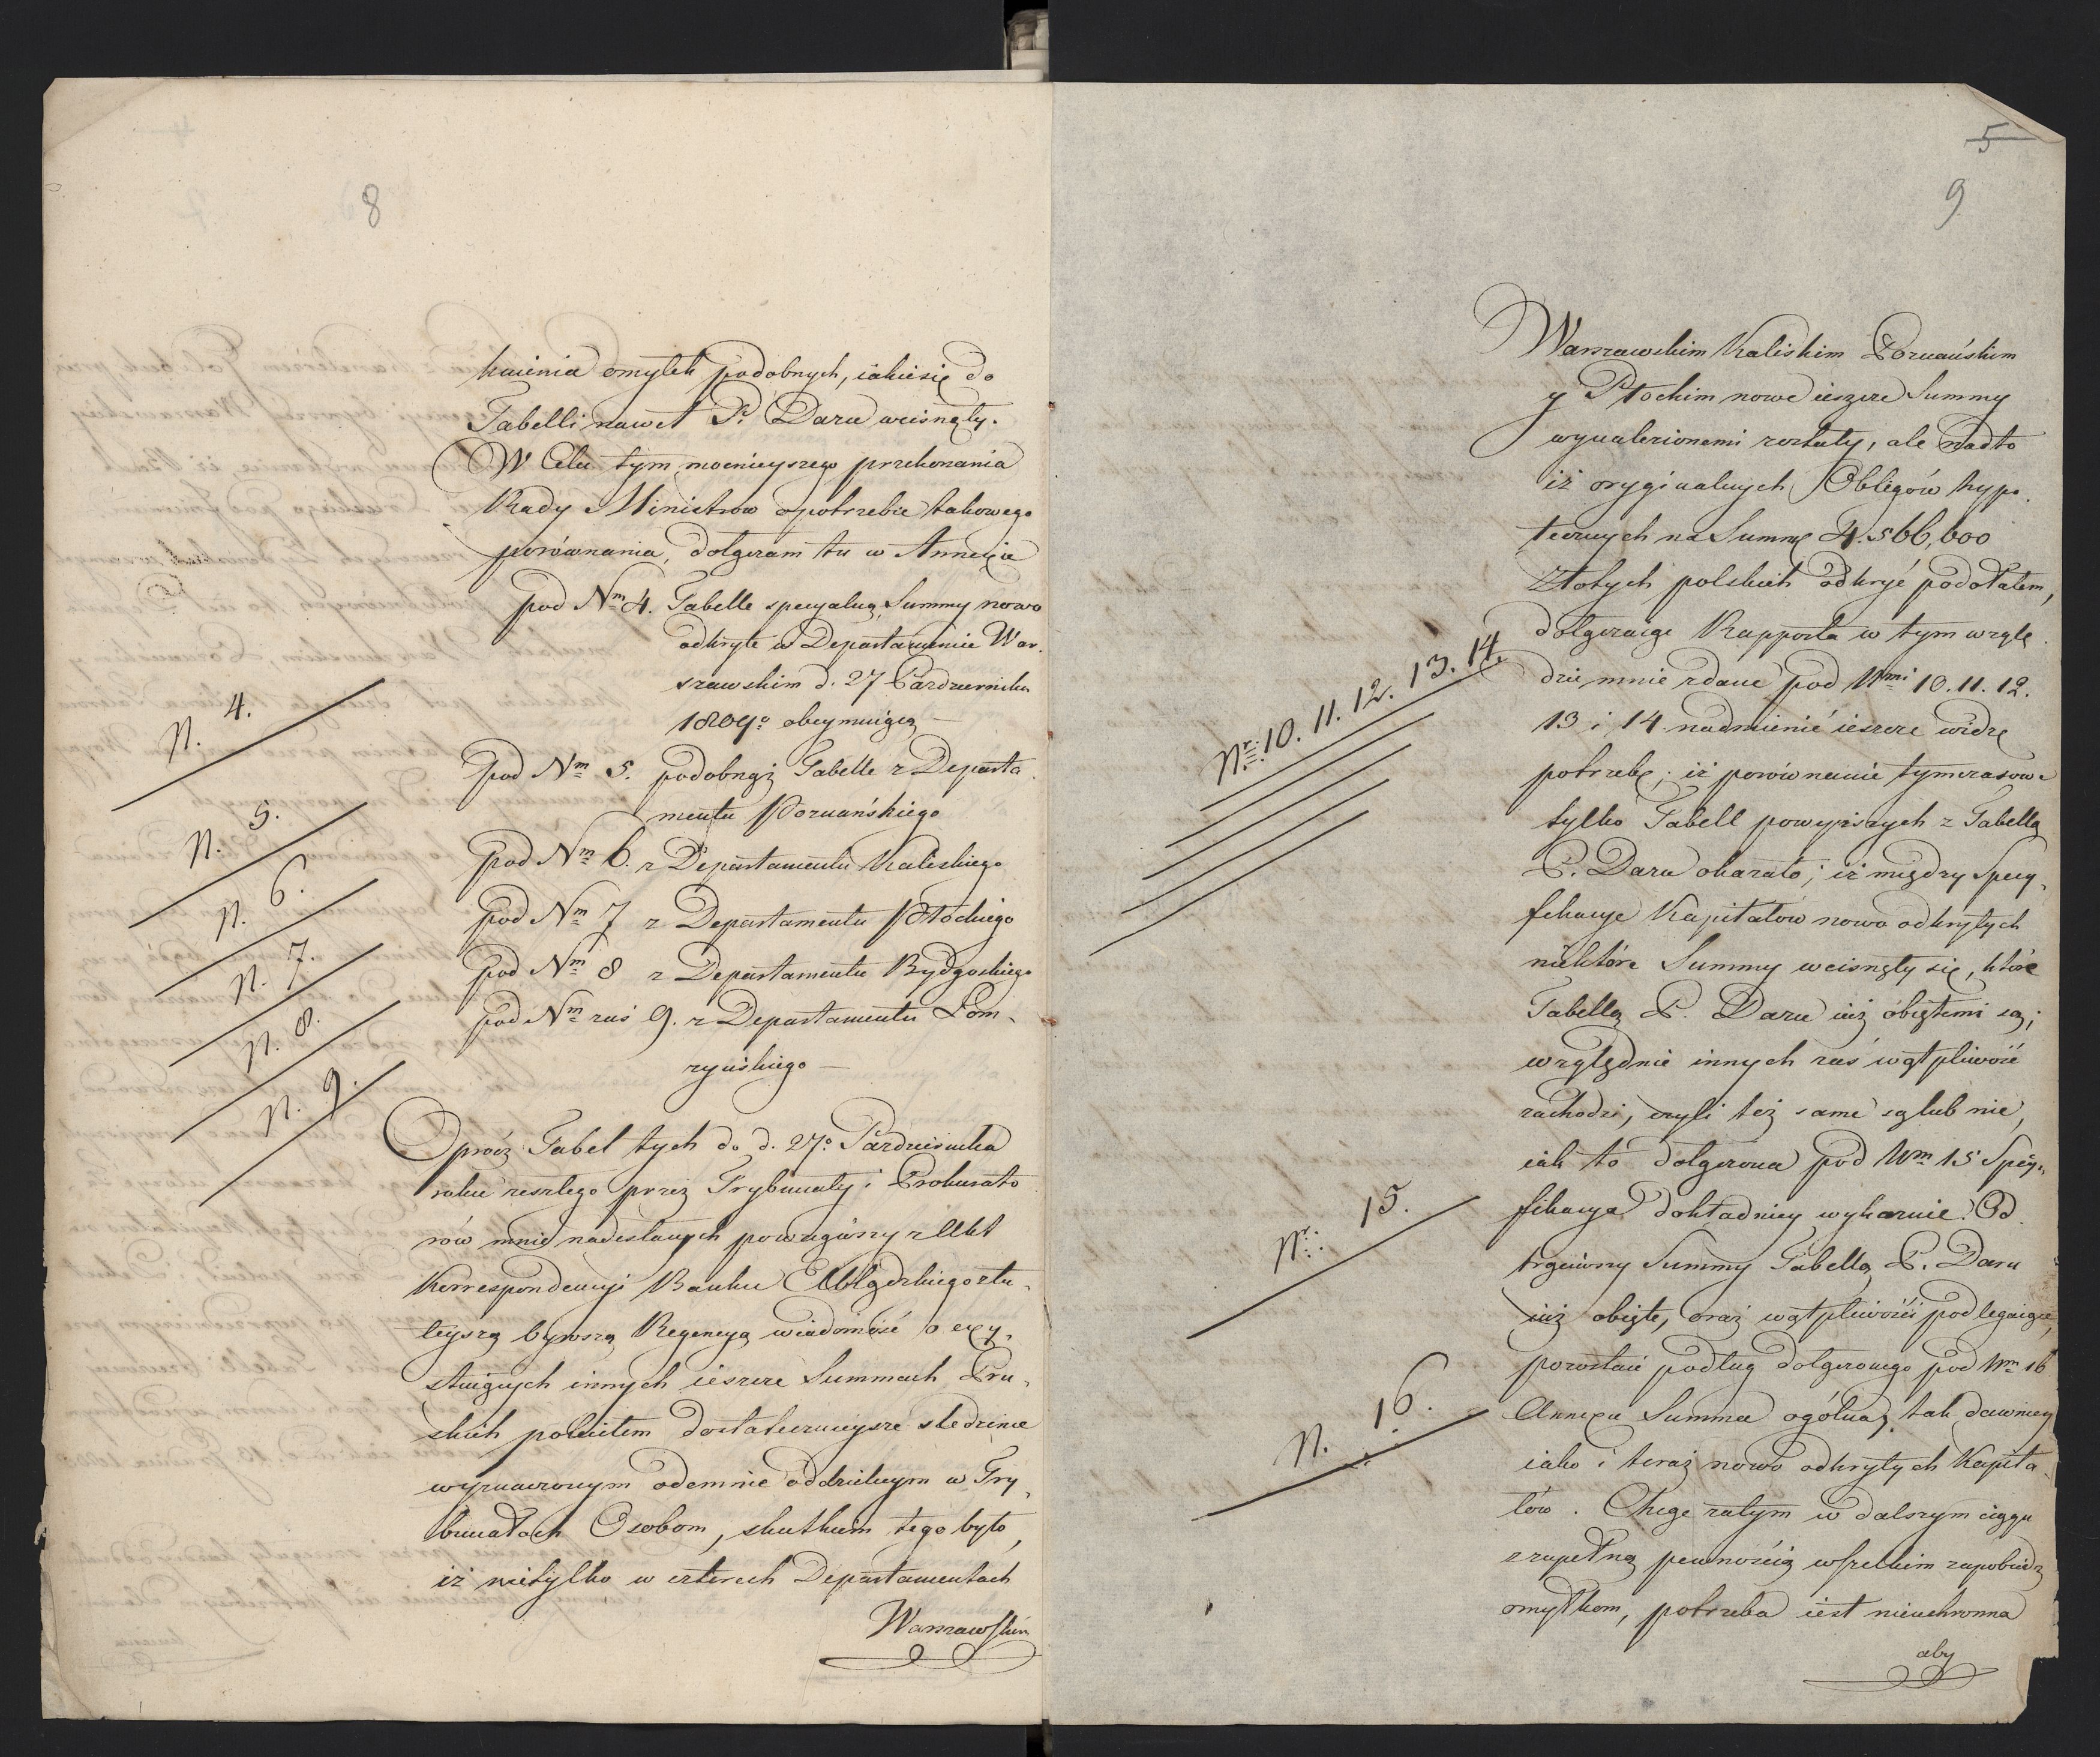 8
knienia omyłek podobnych, iakie się do
Tabelli nawet P. Daru wcisnęły.
W Celu tym mocnieyszego przekonania
Rady Ministrow o potrzebie takowego
porównania, dołączam tu w Annexie
pod Nm 4. Tabelle specyalną Summy nowo
odkryte w Departamencie War,
szawskim d. 27 Pazdziernika
1809o obeymuiącą —
pod Nm 5. podobnąż Tabelle z Departa
mentu Poznańskiego
pod Nm 6. z Departamentu Kaliskiego
pod Nm 7 z Departamentu Płockiego
pod Nm 8 z Departamentu Bydgoskiego
pod Nm zaś 9. z Departamentu Łom,
zyńskiego —
N. 4.
N. 5.
N. 6.
N. 7.
N. 8.
N. 9.
Oprócz Tabel tych do d. 27o Pazdziernika
roku zeszłego przez Trybunały i Prokurato
rów mnie nadesłanych powziąwszy z Akt
Korrespondencyi Banku Elblądzkiego z tu,
teyszą bywszą Regencyą wiadomość o exy,
stuiących innych ieszcze Summach Pru,
skich poleciłem dostatecznieysze sledzenie
wyznaczonym odemnie oddzielnym w Try,
bunałach Osobom, skutkiem tego było,
iż nietylko w czterech Departamentach
Warszawskim
5
9
Warszawskim Kaliskim Poznańskim
y Płockim nowe ieszcze Summy
wynalezionemi zostały, ale nadto
iż oryginalnych Obligów hypo,
tecznych na Summę 4.566,600
Złotych polskich odkryć podołałem,
dołączaiąc Rapporta w tym wzglę
dzie mnie zdane pod Nmi 10. 11. 12.
13 i 14 nadmienić ieszcze widzę
potrzebę; iż porównanie tymczasowe
tylko Tabell powyższych z Tabellą
P. Daru okazało; iż między Specy,
fikacye Kapitałów nowo odkrytych
niektóre Summy wcisnęły się, które
Tabellą P. Daru iuż obiętemi są;
względnie innych zaś wątpliwość
zachodzi, czyli też same są lub nie,
iak to dołączona pod Nm 15 Specy,
fikacya dokładniey wykaznie. Od
trąciwszy Summy Tabellą P. Daru
iuż obięte, oraz wątpliwości podlegaiące,
pozostaie podług dołączonego pod Nm 16
Annexu Summa ogólna, tak dawniey
iako i teraz nowo odkrytych Kapita,
łów. Chcąc zatym w dalszym ciągu
z zupełną pewnością wszelkim zapobiedz
omyłkom, potrzeba iest nieuchronna
aby
Nr. 10. 11. 12. 13. 14.
Nr. 15.
N. 16.